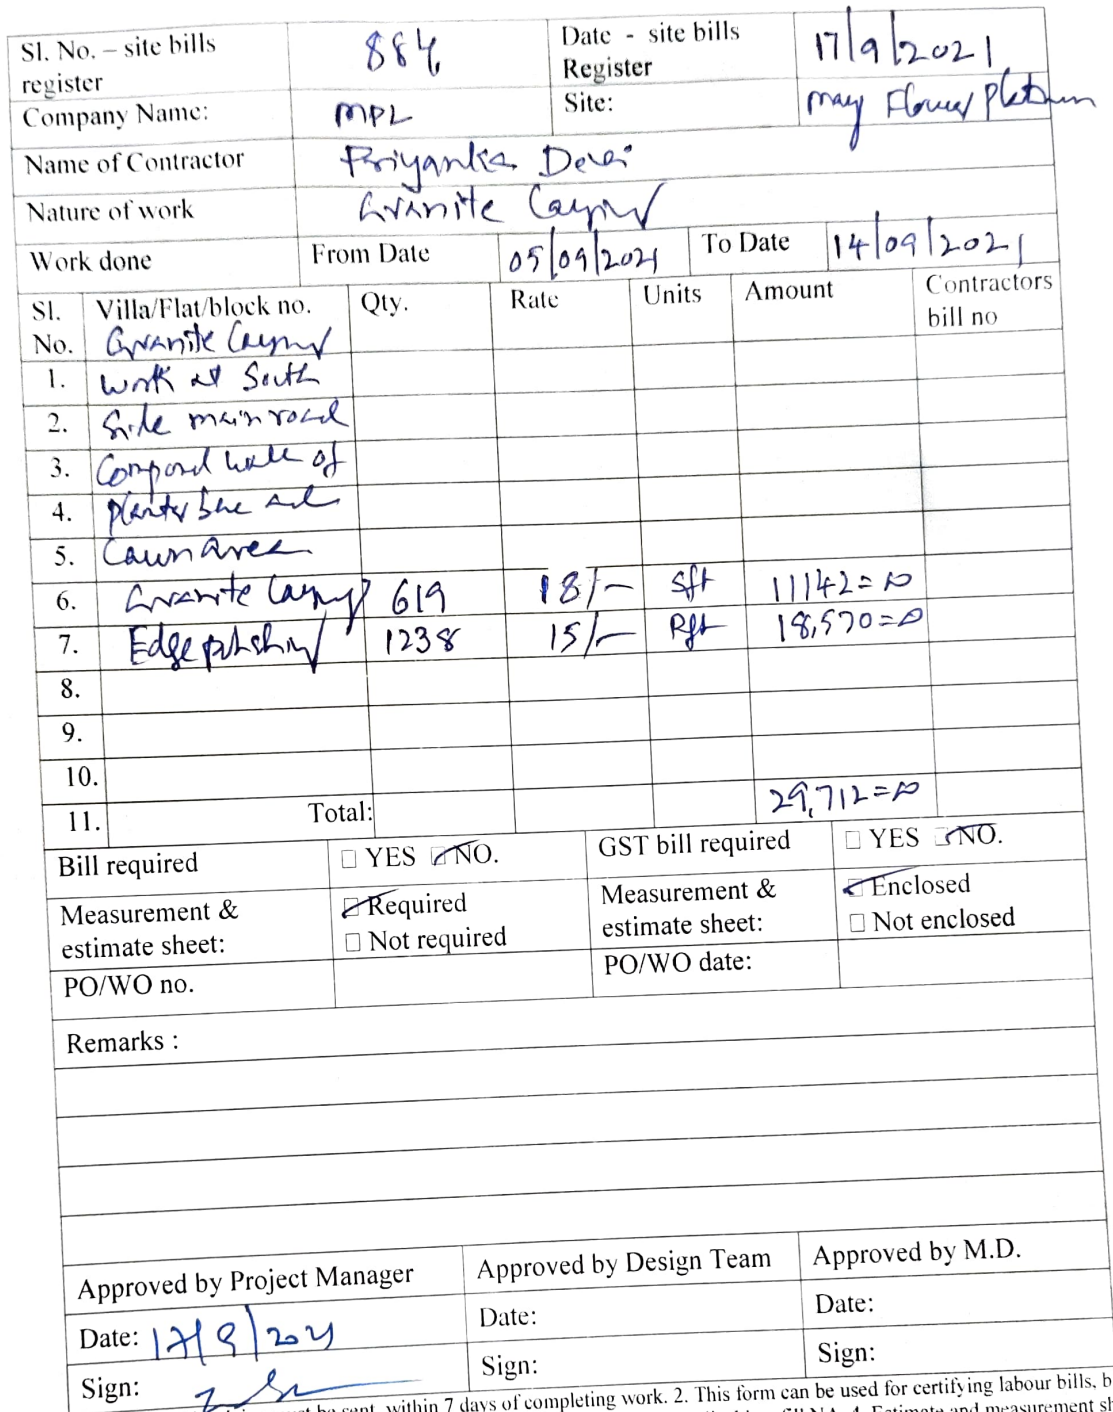 Sl. No. – site bills register 884 Date - site bills Register 17/9/2021
Company Name: MPL Site: may Flower Platinum
Name of Contractor Priyanka Devi
Nature of work Granite Laying
Work done From Date 05/09/2021 To Date 14/09/2021
Sl. No. Villa/Flat/block no. Qty. Rate Units Amount Contractors bill no
Granite Laying
1. work at South
2. Side main road
3. Compond wall of
4. planter
5. Lawn area
6. Granite Laying 619 18/- sft 11142=00
7. Edge polishing 1238 15/- Rft 18,570=00
8.
9.
10.
11. Total: 29,712=00
Bill required □ YES □ NO. GST bill required □ YES □ NO.
Measurement & estimate sheet: □ Required Measurement & estimate sheet: □ Enclosed
□ Not required □ Not enclosed
PO/WO no. PO/WO date:
Remarks :
Approved by Project Manager Approved by Design Team Approved by M.D.
Date: 17/9/2021 Date: Date:
Sign: Sign: Sign:
be sent within 7 days of completing work. 2. This form can be used for certifying labour bills, b
4. Estimate and measurement sh